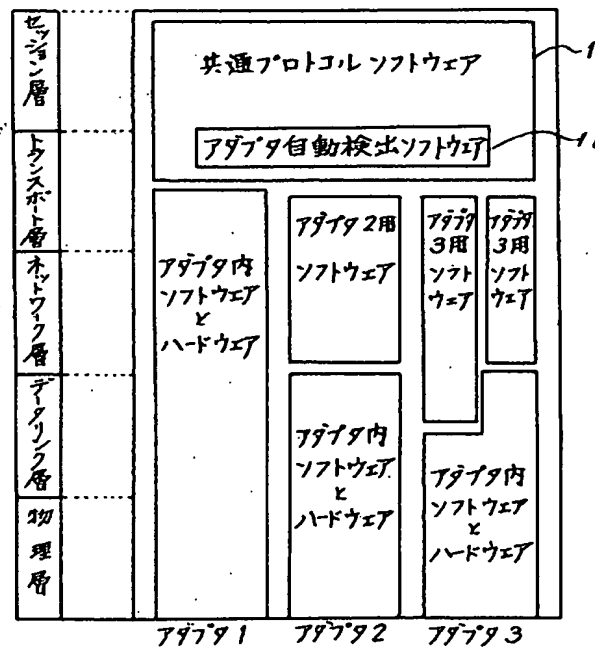 セッション層
トランスポート層
ネットワーク層
データリンク層
物理層
共通プロトコル ソフトウェア
アダプタ自動検出ソフトウェア
アダプタ内
ソフトウェア
と
ハードウェア
アダプタ 2用
ソフトウェア
アダプタ
3用
ソフト
ウェア
アダプタ
3用
ソフト
ウェア
アダプタ内
ソフトウェア
と
ハードウェア
アダプタ内
ソフトウェア
と
ハードウェア
アダプタ 1
アダプタ 2
アダプタ 3